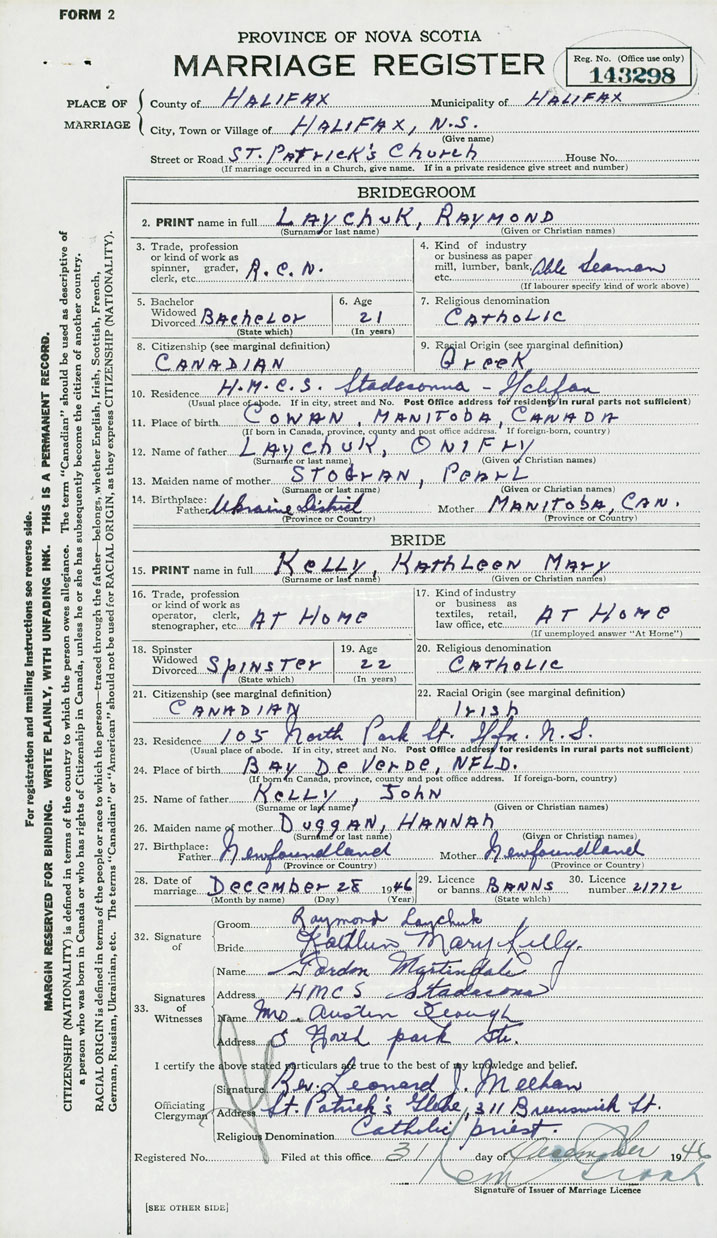 FORM 2
PROVINCE OF NOVA SCOTIA
MARRIAGE REGISTER
Reg. No. (Office use only)
143298
PLACE OF MARRIAGE
County of HALIFAX Municipality of HALIFAX
City, Town or Village of HALIFAX, N.S.
(Give name)
Street or Road ST. PATRICK'S CHURCH House No.
(If marriage occurred in a Church, give name. If in a private residence give street and number)
BRIDEGROOM
2. PRINT name in full LAYCHUK, RAYMOND
(Surname or last name) (Given or Christian names)
3. Trade, profession or kind of work as spinner, grader, clerk, etc. R.C.N.
4. Kind of industry or business as paper mill, lumber, bank, etc. Able Seaman
(If labourer specify kind of work above)
5. Bachelor Widowed Divorced BACHELOR
(State which)
6. Age 21
(In years)
7. Religious denomination
CATHOLIC
8. Citizenship (see marginal definition)
CANADIAN
9. Racial Origin (see marginal definition)
Greek
10. Residence H.M.C.S. Stadasonna - Halifax
(Usual place of abode. If in city, street and No. Post Office address for residents in rural parts not sufficient)
11. Place of birth COWAN, MANITOBA, CANADA
(If born in Canada, province, county and post office address. If foreign-born, country)
12. Name of father LAYCHUK, ONIFRY
(Surname or last name) (Given or Christian names)
13. Maiden name of mother PEARL
(Surname or last name) (Given or Christian names)
14. Birthplace: Father Ukraine District Mother MANITOBA, CAN.
(Province or Country) (Province or Country)
BRIDE
15. PRINT name in full KELLY, KATHLEEN MARY
(Surname or last name) (Given or Christian names)
16. Trade, profession or kind of work as operator, clerk, stenographer, etc. AT HOME
17. Kind of industry or business as textiles, retail, law office, etc. AT HOME
(If unemployed answer "At Home")
18. Spinster Widowed Divorced SPINSTER
(State which)
19. Age 22
(In years)
20. Religious denomination
CATHOLIC
21. Citizenship (see marginal definition)
CANADIAN
22. Racial Origin (see marginal definition)
Irish
23. Residence 105 North Park St. Hfx. N.S.
(Usual place of abode. If in city, street and No. Post Office address for residents in rural parts not sufficient)
24. Place of birth BAY DE VERDE, NFLD.
(If born in Canada, province, county and post office address. If foreign-born, country)
25. Name of father KELLY, JOHN
(Surname or last name) (Given or Christian names)
26. Maiden name of mother DUGGAN, HANNAH
(Surname or last name) (Given or Christian names)
27. Birthplace: Father Newfoundland Mother Newfoundland
(Province or Country) (Province or Country)
28. Date of marriage December 28 1946
(Month by name) (Day) (Year)
29. Licence or banns BANNS
(State which)
30. Licence number 21772
32. Signature of
Groom Raymond Laychuk
Bride Kathleen Mary Kelly.
33. Signatures of Witnesses
Name Gordon Martindale
Address HMCS Stadacona
Name Mrs. Austin Keough
Address 5 North park Str.
I certify the above stated particulars are true to the best of my knowledge and belief.
Officiating Clergyman
Signature Rev. Leonard J. Meehan
Address St. Patrick's Glebe, 311 Brunswick St.
Religious Denomination Catholic priest.
Registered No. Filed at this office 31 day of December 1946
Signature of Issuer of Marriage Licence
[SEE OTHER SIDE]
For registration and mailing instructions see reverse side.
MARGIN RESERVED FOR BINDING. WRITE PLAINLY, WITH UNFADING INK. THIS IS A PERMANENT RECORD.
CITIZENSHIP (NATIONALITY) is defined in terms of the country to which the person owes allegiance. The term "Canadian" should be used as descriptive of
a person who was born in Canada or who has rights of Citizenship in Canada, unless he or she has subsequently become the citizen of another country.
RACIAL ORIGIN is defined in terms of the people or race to which the person—traced through the father—belongs, whether English, Irish, Scottish, French,
German, Russian, Ukrainian, etc. The terms "Canadian" or "American" should not be used for RACIAL ORIGIN, as they express CITIZENSHIP (NATIONALITY).